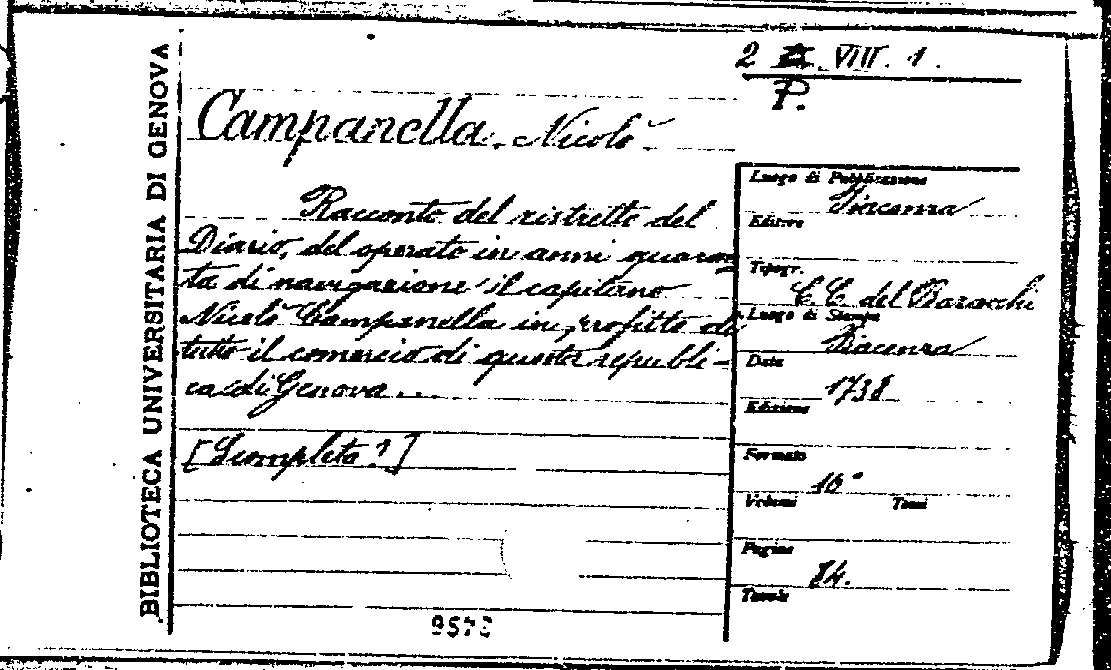 BIBLIOTECA UNIVERSITARIA DI GENOVA
2 VIII. 1.
P.
Campanella, Nicolò
Racconto del ristretto del
Diario, del operato in anni quaran=
ta di navigazione il capitano
Nicolò Campanella in profitto di
tutto il comercio di questa republi-
ca di Genova...
[Scompleto?]
Luogo di Pubblicazione
Piacenza
Editore
Tipogr.
del Baracchi
Luogo di Stampa
Piacenza
Data
1738
Edizione
Formato
16°
Volumi Tomi
Pagine
84.
Tavole
9573